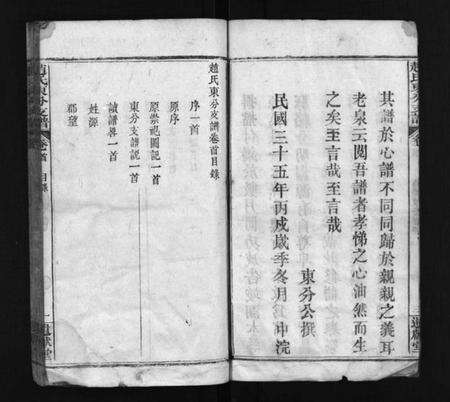 其譜於心譜不同同歸於親親之義耳
老泉云閱吾譜者孝悌之心油然而生
之矣至言哉至言哉
東分公撰
民國三十五年丙戌歲季冬月
中浣
趙氏東分支譜
卷
趙氏東分支譜卷首目錄
序一首
原序
東分支譜記一首
一首
姓源
郡望
趙氏東分支譜
卷首
目錄
一